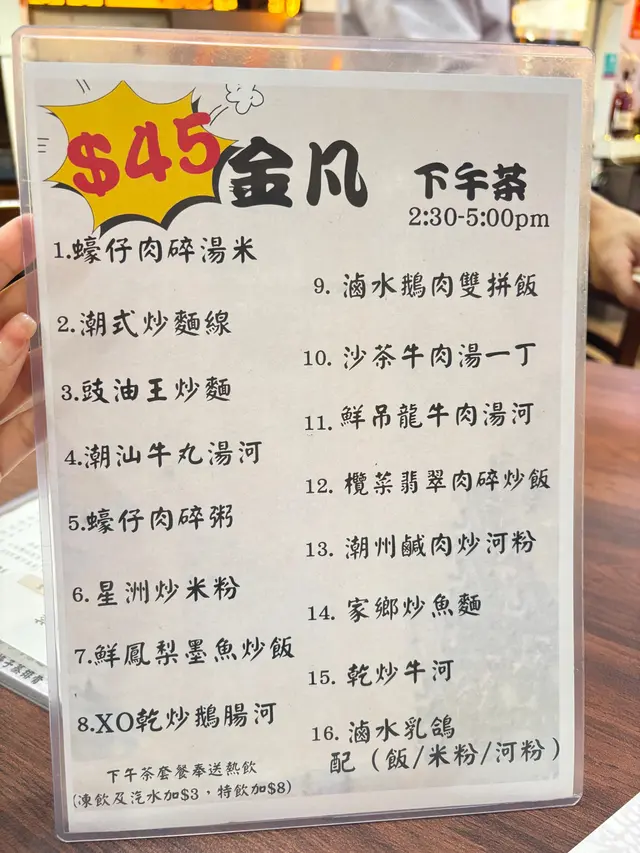 $45
金凡
下午茶
2:30-5:00pm
1.蠔仔肉碎湯米
2.潮式炒麵線
3.豉油王炒麵
4.潮汕牛丸湯河
5.蠔仔肉碎粥
6.星洲炒米粉
7.鮮鳳梨墨魚炒飯
8.XO乾炒鵝腸河
下午茶套餐奉送熱飲
(凍飲及汽水加$3，特飲加$8)
9. 滷水鵝肉雙拼飯
10. 沙茶牛肉湯一丁
11. 鮮吊龍牛肉湯河
12. 欖菜翡翠肉碎炒飯
13. 潮州鹹肉炒河粉
14. 家鄉炒魚麵
15. 乾炒牛河
16. 滷水乳鴿
配（飯/米粉/河粉）